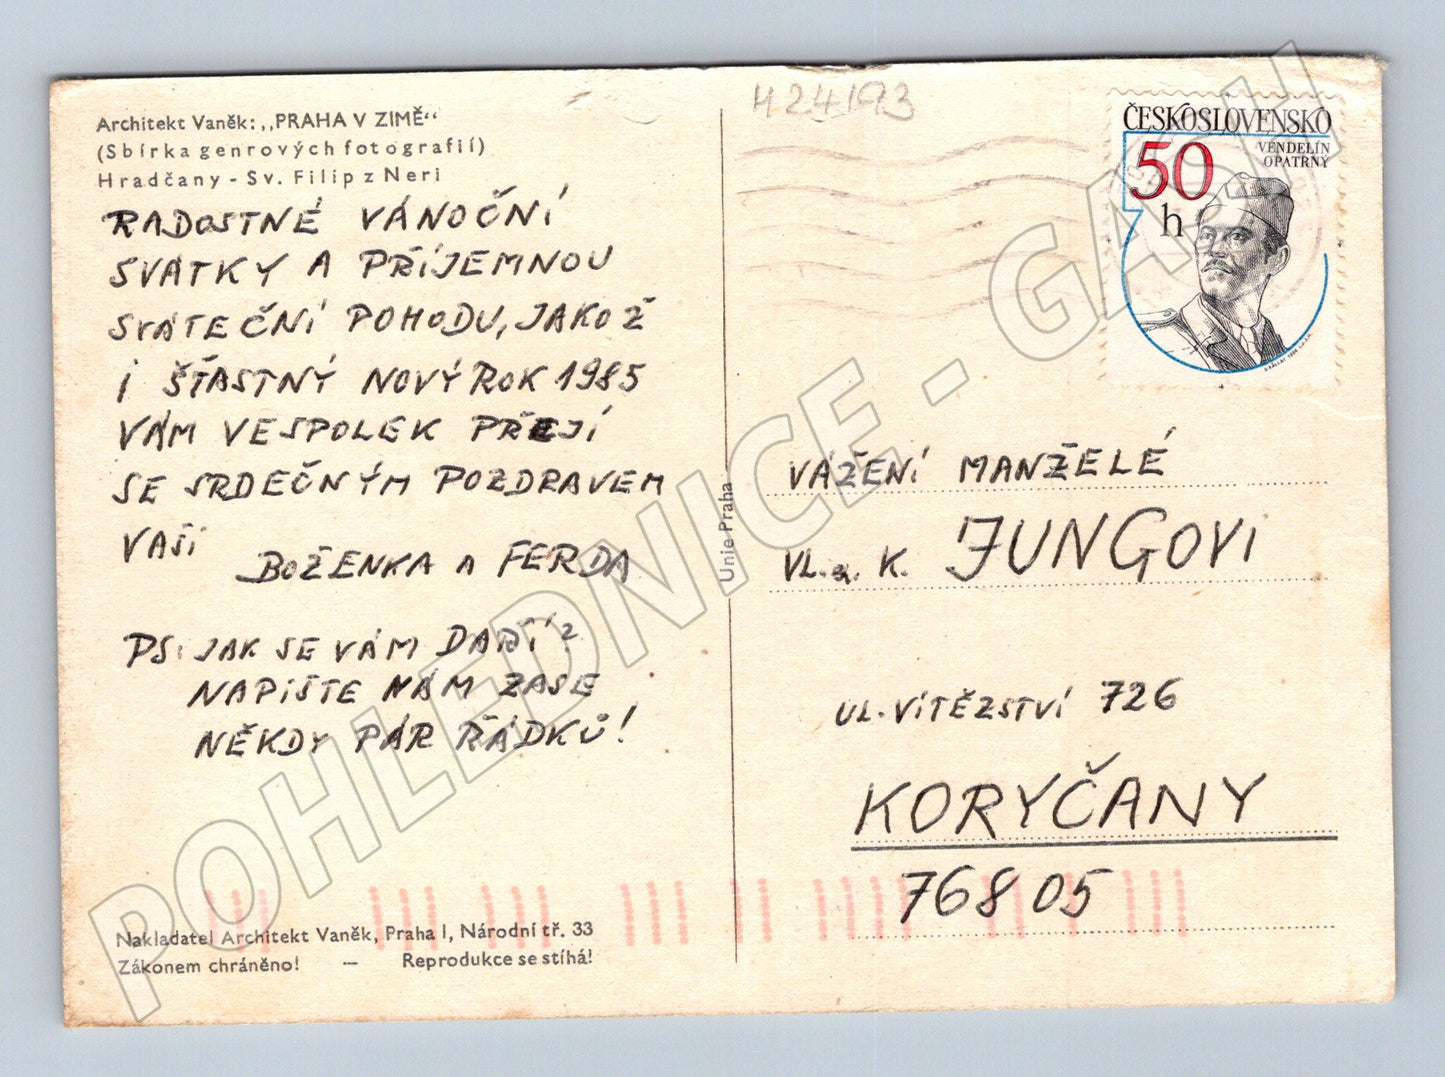 Architekt Vaněk: „PRAHA V ZIMĚ“
(Sbírka genrových fotografií)
Hradčany - Sv. Filip z Neri
RADOSTNÉ VÁNOČNÍ
SVÁTKY A PŘÍJEMNOU
SVÁTEČNÍ POHODU, JAKOŽ
i ŠŤASTNÝ NOVÝ ROK 1985
VÁM VESPOLEK PŘEJÍ
SE SRDEČNÝM POZDRAVEM
VAŠI
BOŽENKA A FERDA
PS: JAK SE VÁM DAŘÍ?
NAPIŠTE NÁM ZASE
NĚKDY PÁR ŘÁDKŮ!
Nakladatel Architekt Vaněk, Praha I, Národní tř. 33
Zákonem chráněno! — Reprodukce se stíhá!
Unie Praha
424193
ČESKOSLOVENSKO
50
h
VENDELÍN
OPATRNÝ
VÁŽENÍ MANŽELÉ
VL. a. K. JUNGOVI
UL. VÍTĚZSTVÍ 726
KORYČANY
768 05
POHLEDNICE - GASH